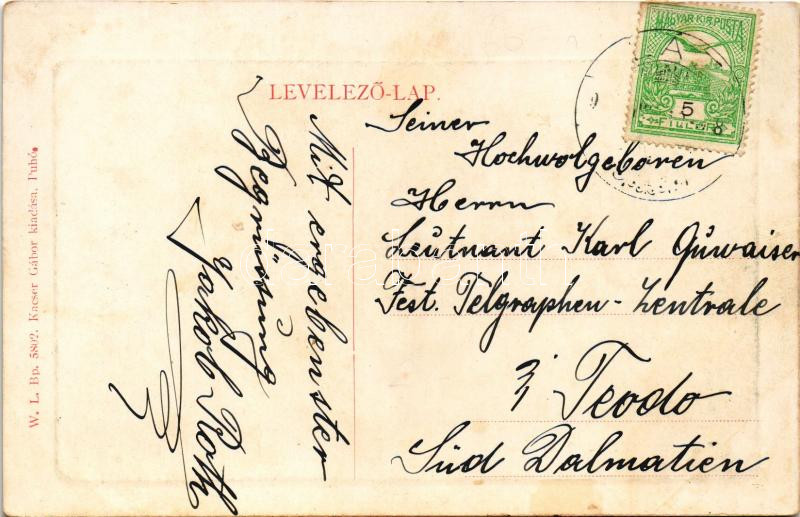 LEVELEZŐ-LAP.
MAGYAR KIR. POSTA
5
FILLÉR
Seiner
Hochwolgeboren
Herrn
Leutnant Karl Guwaiser
Fest. Telgraphen-Zentrale
Teodo
Süd Dalmatien
Mit ergebenster
Begrüßung
Jakob Roth
W. L. Bp. 5802. Kacser Gábor kiadása, Puhó.
darabanth